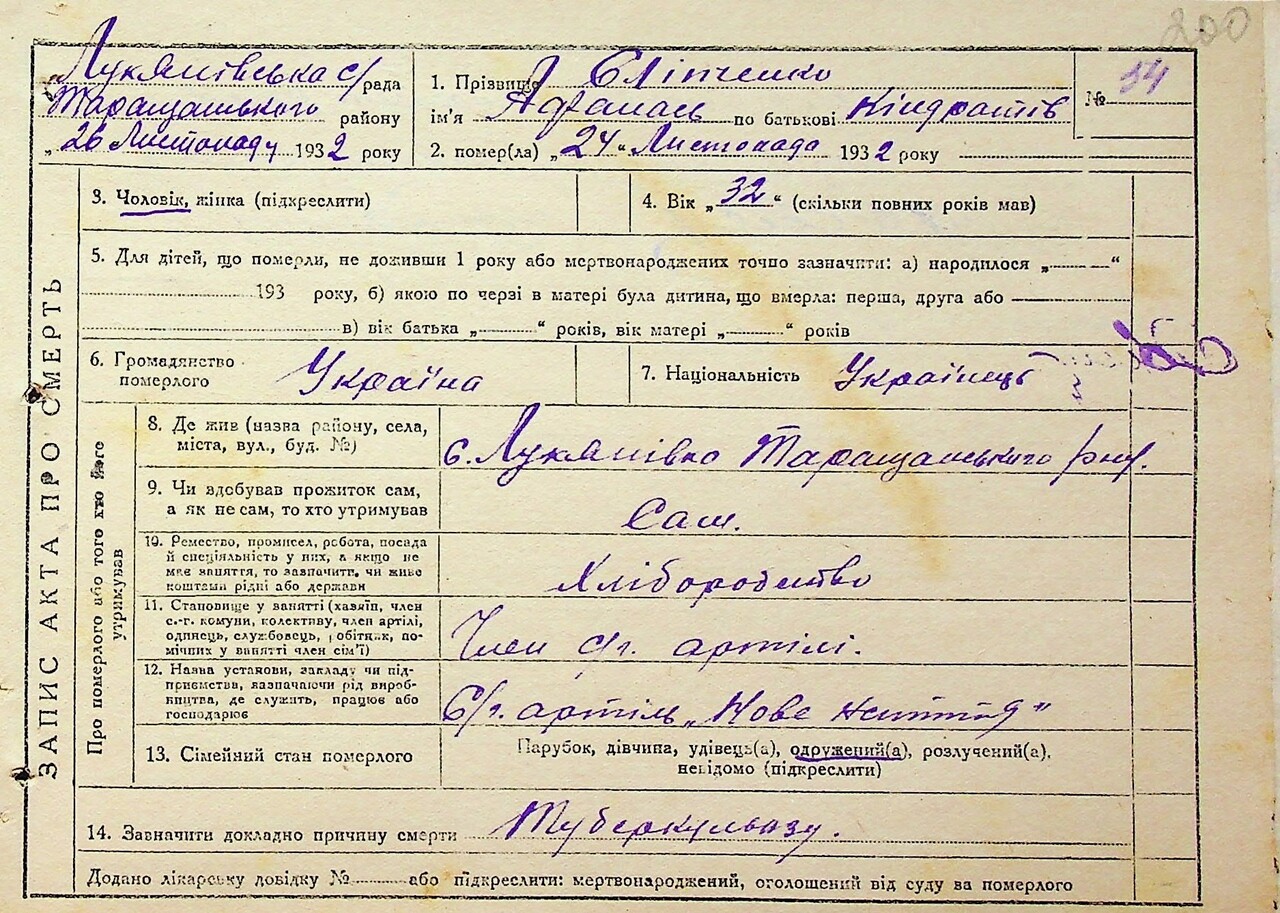 200
Лукянівська с/рада
Таращанського району
„26 Листопаду 1932 року
1. Прізвище Сліпченко
ім'я Афанась по батькові Кіндратів
2. помер(ла) „24“ Листопада 1932 року
№ 54
ЗАПИС АКТА ПРО СМЕРТЬ
3. Чоловік, жінка (підкреслити)
4. Вік „32“ (скільки повних років мав)
5. Для дітей, що померли, не доживши 1 року або мертвонароджених точно зазначити: а) народилося „ “
193 року, б) якою по черзі в матері була дитина, що вмерла: перша, друга або
в) вік батька „ “ років, вік матері „ “ років
6. Громадянство
померлого
Україна
7. Національність Українець
Про померлого або того хто його
утримував
8. Де жив (назва району, села,
міста, вул., буд. №)
с. Лукянівко Таращанського рну.
9. Чи здобував прожиток сам,
а як не сам, то хто утримував
Сам.
10. Ремество, промисел, робота, посада
й спеціяльність у них, а якщо не
має заняття, то зазначить, чи живе
коштами рідні або держави
Хліборобство
11. Становище у занятті (хазяїн, член
с.-г. комуни, колективу, член артілі,
одинець, службовець, робітник, по-
мічних у занятті член сім'ї)
Член с/г. артілі.
12. Назва установи, закладу чи під-
приємства, зазначаючи рід вироб-
ництва, де служить, працює або
господарює
С/г. артіль „Нове життя"
13. Сімейний стан померлого
Парубок, дівчина, удівець(а), одружений(а), розлучений(а),
невідомо (підкреслити)
14. Зазначити докладно причину смерти Туберкульозу.
Додано лікарську довідку № або підкреслити: мертвонароджений, оголошений від суду за померлого